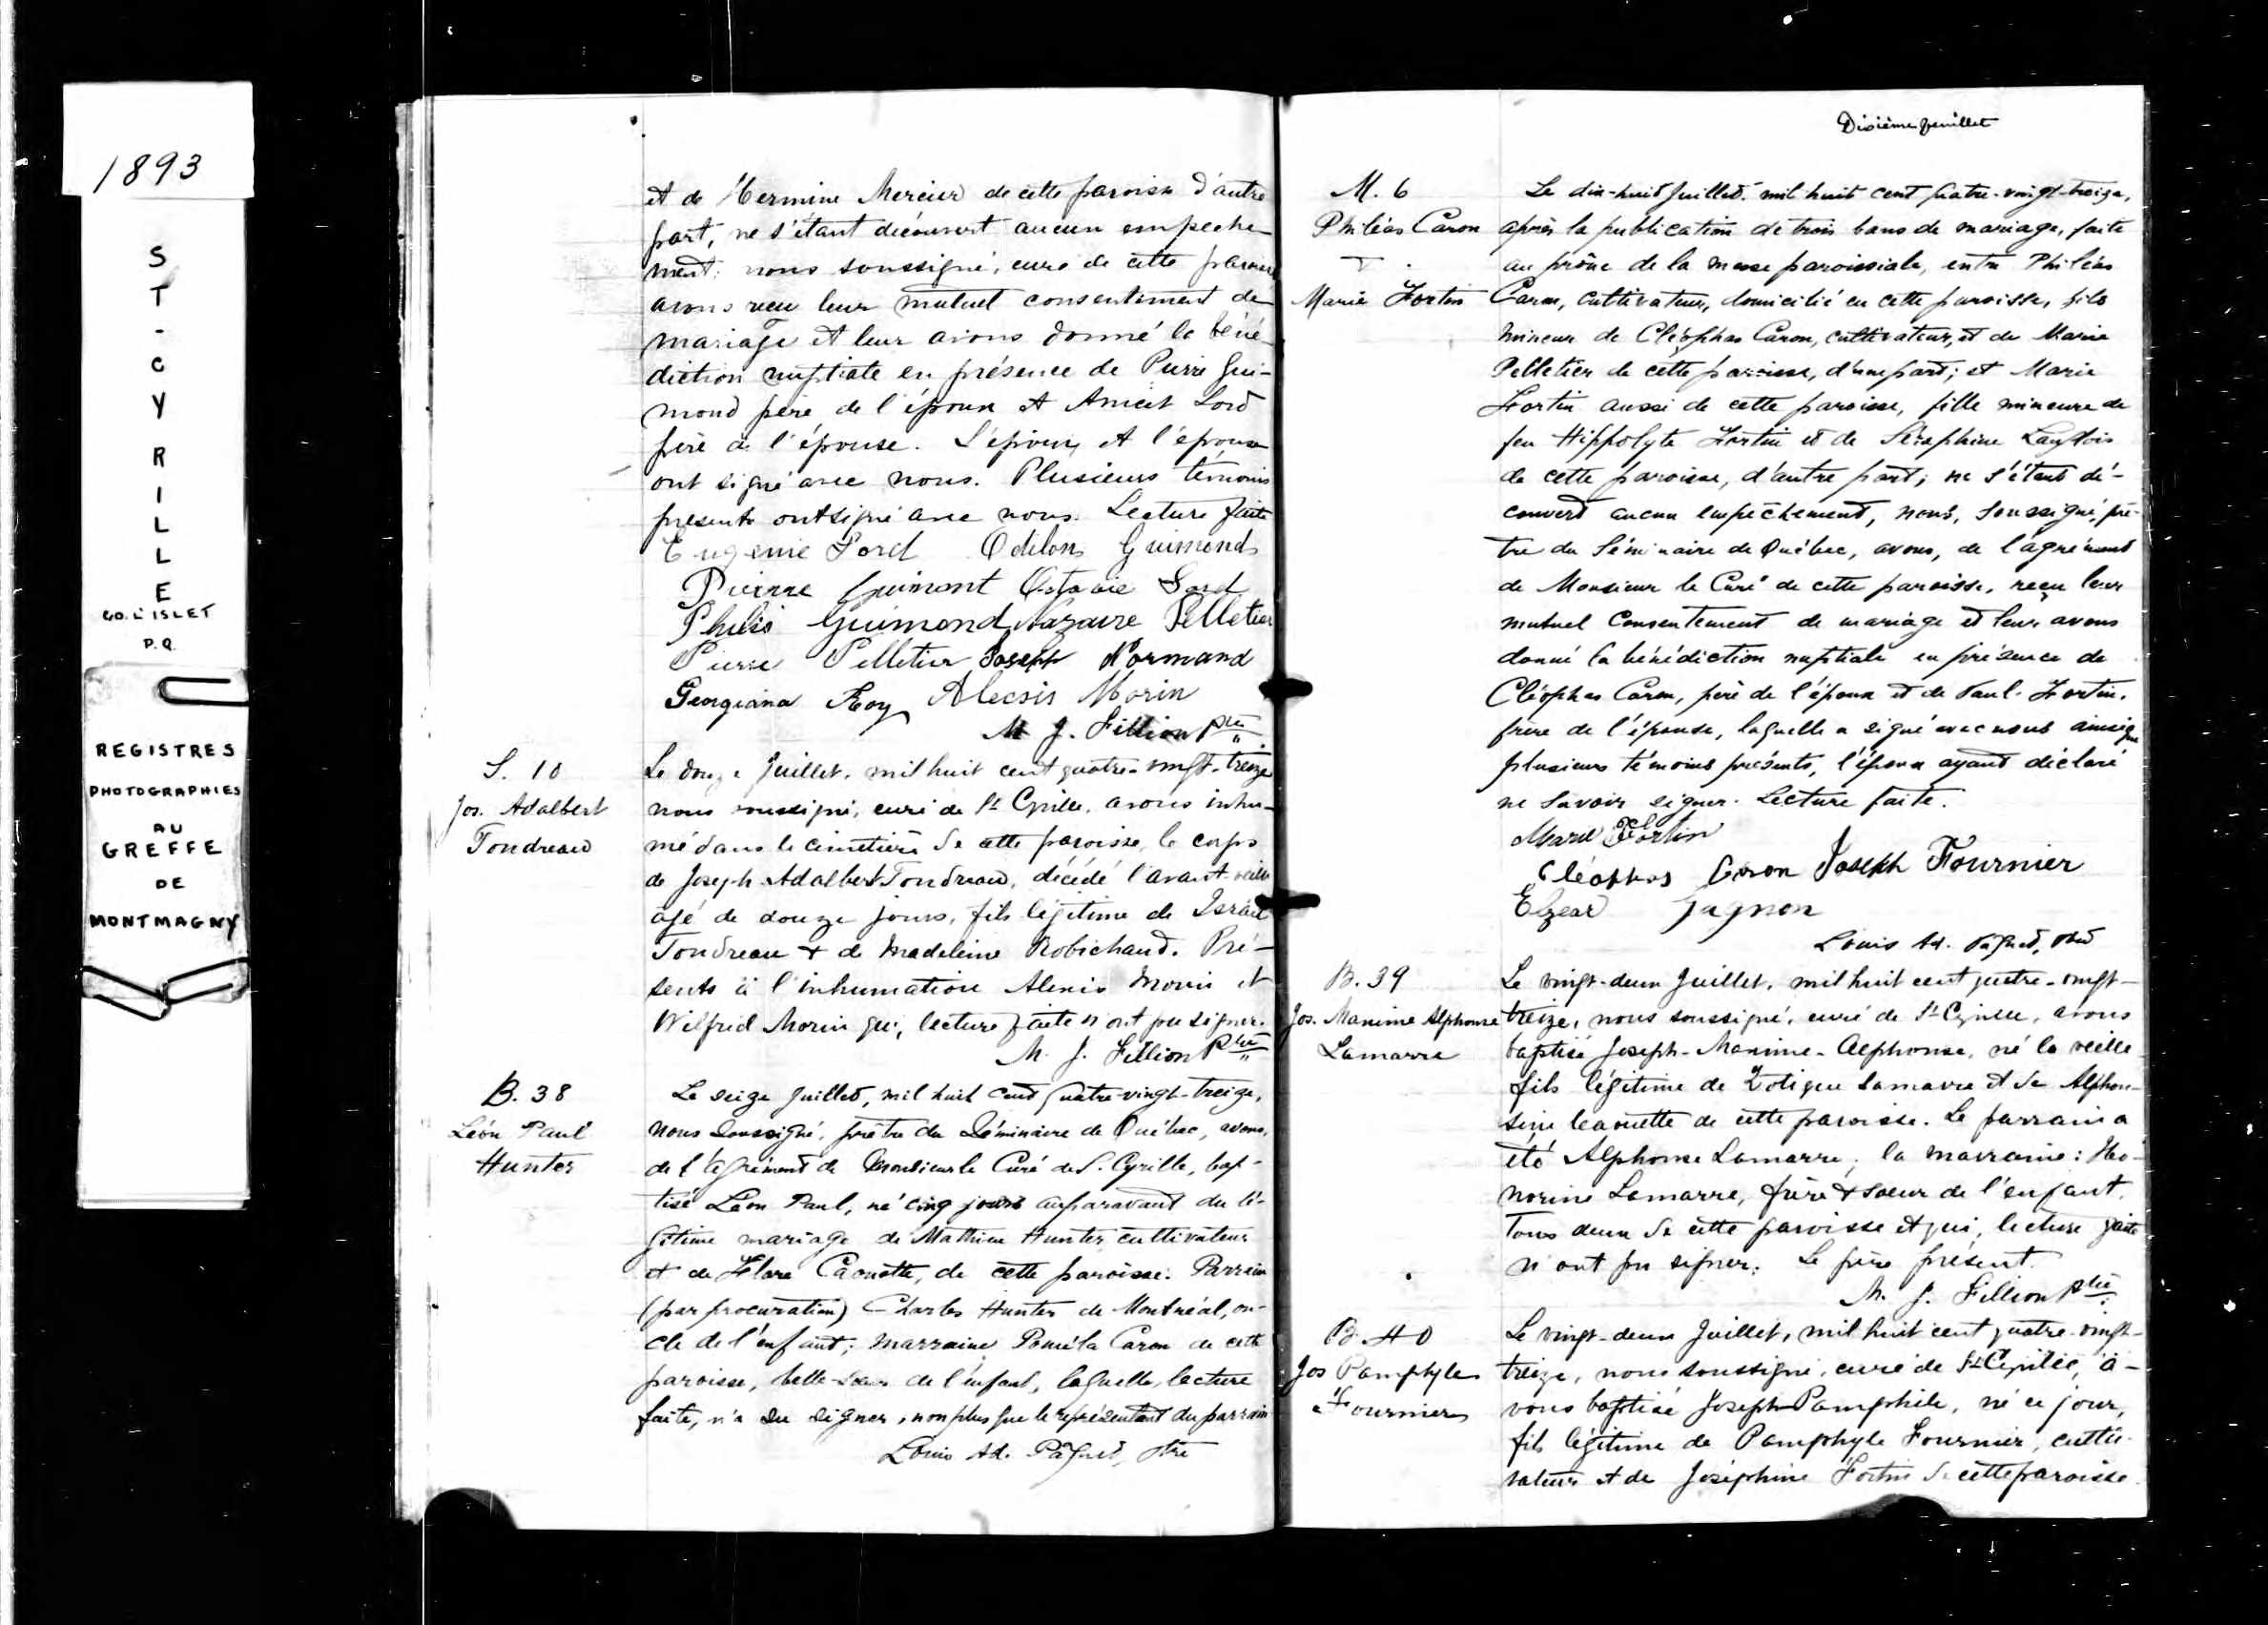 1893
ST-CYRILLE
CO. L'ISLET
P.Q.
REGISTRES
PHOTOGRAPHIES
AU
GREFFE
DE
MONTMAGNY
et de Hermine Mercier de cette paroisse d'autre
part, ne s'étant découvert aucun empeche-
ment: nous soussigné, curé de cette paroisse
avons reçu leur mutuel consentement de
mariage et leur avons donné la béné-
diction nuptiale en présence de Pierre Gui-
mond père de l'époux et Anicet Lord
père de l'épouse. L'époux et l'épouse
ont signé avec nous. Plusieurs témoins
présents ont signé avec nous. Lecture faite
Eugenie Lord Odilon Guimond
Pierre Guimont Octavie Lord
Guimond Nazaire Pelletier
Pierre Pelletier Joseph Normand
Georgiana Roy Alecsis Morin
M. J. Fillion Ptre
S. 10
Jos. Adalbert
Tondreau
Le douze Juillet, mil huit cent quatre-vingt-treize
nous soussigné, curé de St Cyrille, avons inhu-
mé dans le cimetière de cette paroisse, le corps
de Joseph Adalbert Tondreau, décédé l'avant veille
agé de douze jours, fils légitime de Israël
Tondreau & de Madeleine Robichaud. Pré-
sents à l'inhumation Alexis Morin et
Wilfrid Morin qui, lecture faite n'ont pu signer.
M. J. Fillion Ptre
B. 38
Léon Paul
Hunter
Le seize Juillet, mil huit cent quatre-vingt-treize,
nous soussigné, prêtre du Séminaire de Québec, avons,
de l'agrément de Monsieur le Curé de S. Cyrille, bap-
tisé Léon Paul, né cinq jours auparavant du lé-
gitime mariage de Mathieu Hunter, cultivateur
et de Flore Caouette, de cette paroisse. Parrain
(par procuration) Charles Hunter de Montréal, on-
cle de l'enfant; marraine Poméla Caron de cette
paroisse, belle-sœur de l'enfant, laquelle, lecture
faite, n'a su signer, non plus que le représentant du parrain
Louis Ad. Pâquet, ptre
Dixième feuillet
M. 6
Philéas Caron
&
Marie Fortin
Le dix-huit Juillet mil huit cent quatre-vingt-treize,
après la publication de trois bans de mariage, faite
au prône de la messe paroissiale, entre Philéas
Caron, cultivateur, domicilié en cette paroisse, fils
mineur de Cléophas Caron, cultivateur, et de Marie
Pelletier de cette paroisse, d'une part; et Marie
Fortin aussi de cette paroisse, fille mineure de
feu Hippolyte Fortin et de Séraphine Langlois
de cette paroisse, d'autre part; ne s'étant dé-
couvert aucun empêchement, nous, soussigné, prê-
tre du Séminaire de Québec, avons, de l'agrément
de Monsieur le Curé de cette paroisse, reçu leur
mutuel consentement de mariage et leur avons
donné la bénédiction nuptiale en présence de
Cléophas Caron, père de l'époux et de Paul Fortin,
frère de l'épouse, laquelle a signé avec nous ainsi que
plusieurs témoins présents, l'époux ayant déclaré
ne savoir signer. Lecture faite.
Marie Fortin
Cléophas Caron Joseph Fournier
Elzear Gagnon
Louis Ad. Pâquet, ptre
B. 39
Jos. Maxime Alphonse
Lamarre
Le vingt-deux Juillet, mil huit cent quatre-vingt-
treize, nous soussigné, curé de St Cyrille, avons
baptisé Joseph-Maxime-Alphonse, né la veille
fils légitime de Zotique Lamarre et de Alphon-
sine Caouette de cette paroisse. Le parrain a
été Alphonse Lamarre; la marraine: Ho-
norine Lamarre, frère & soeur de l'enfant,
tous deux de cette paroisse et qui, lecture faite
n'ont pu signer. Le père présent.
M. J. Fillion Ptre
B. 40
Jos Pamphyle
Fournier
Le vingt-deux Juillet, mil huit cent quatre-vingt-
treize, nous soussigné, curé de St Cyrille, a-
vons baptisé Joseph Pamphile, né ce jour,
fils légitime de Pamphyle Fournier, culti-
vateur et de Joséphine Fortin de cette paroisse